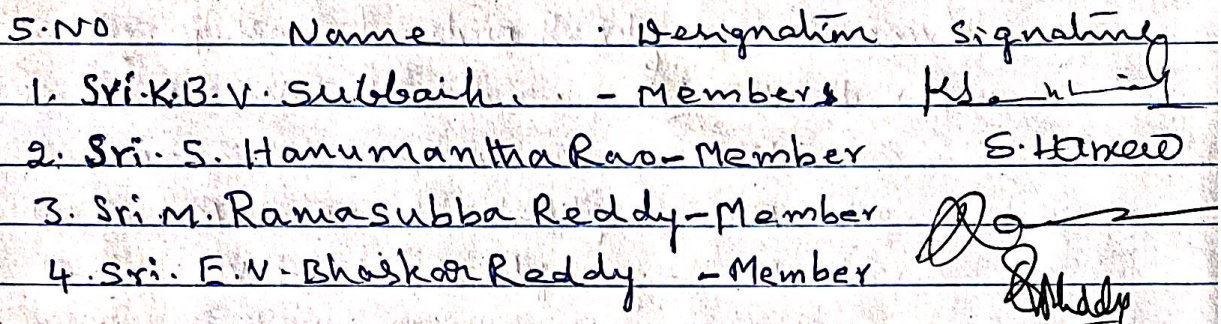 S.NO Name Designation Signature
1. Sri.K.B.V. Subbaiah. - Members
2. Sri. S. Hanumantha Rao - Member
3. Sri M. Ramasubba Reddy - Member
4. Sri. E.V. Bhaskar Reddy - Member